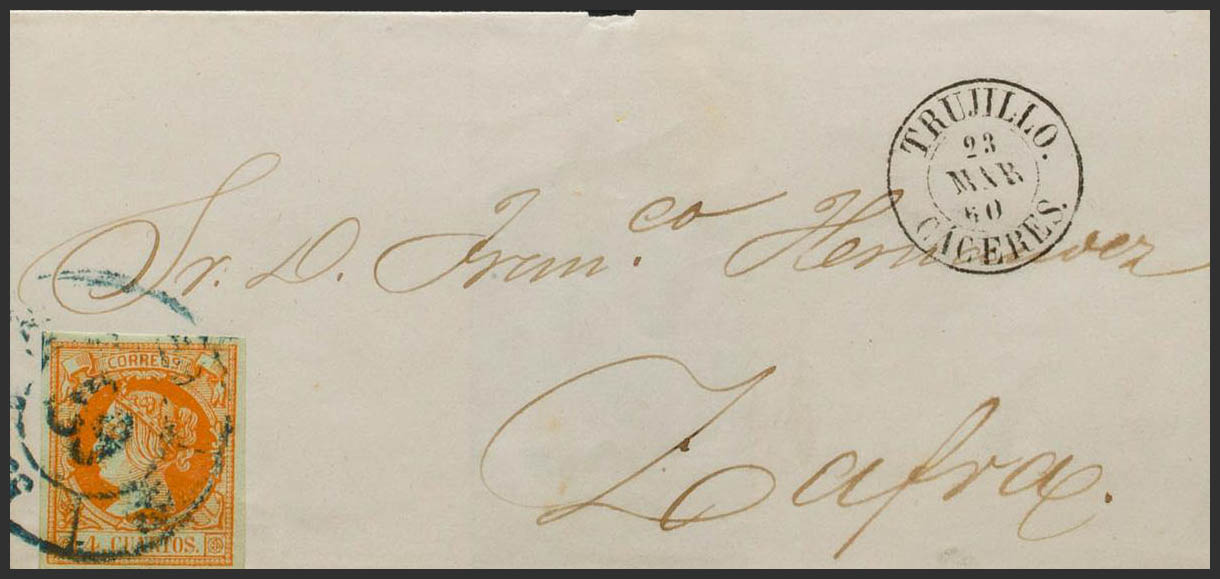 TRUJILLO.
23
MAR
60
CACERES.
Sr. D. Fran.co
Zafra.
CORREOS
4 CUARTOS.